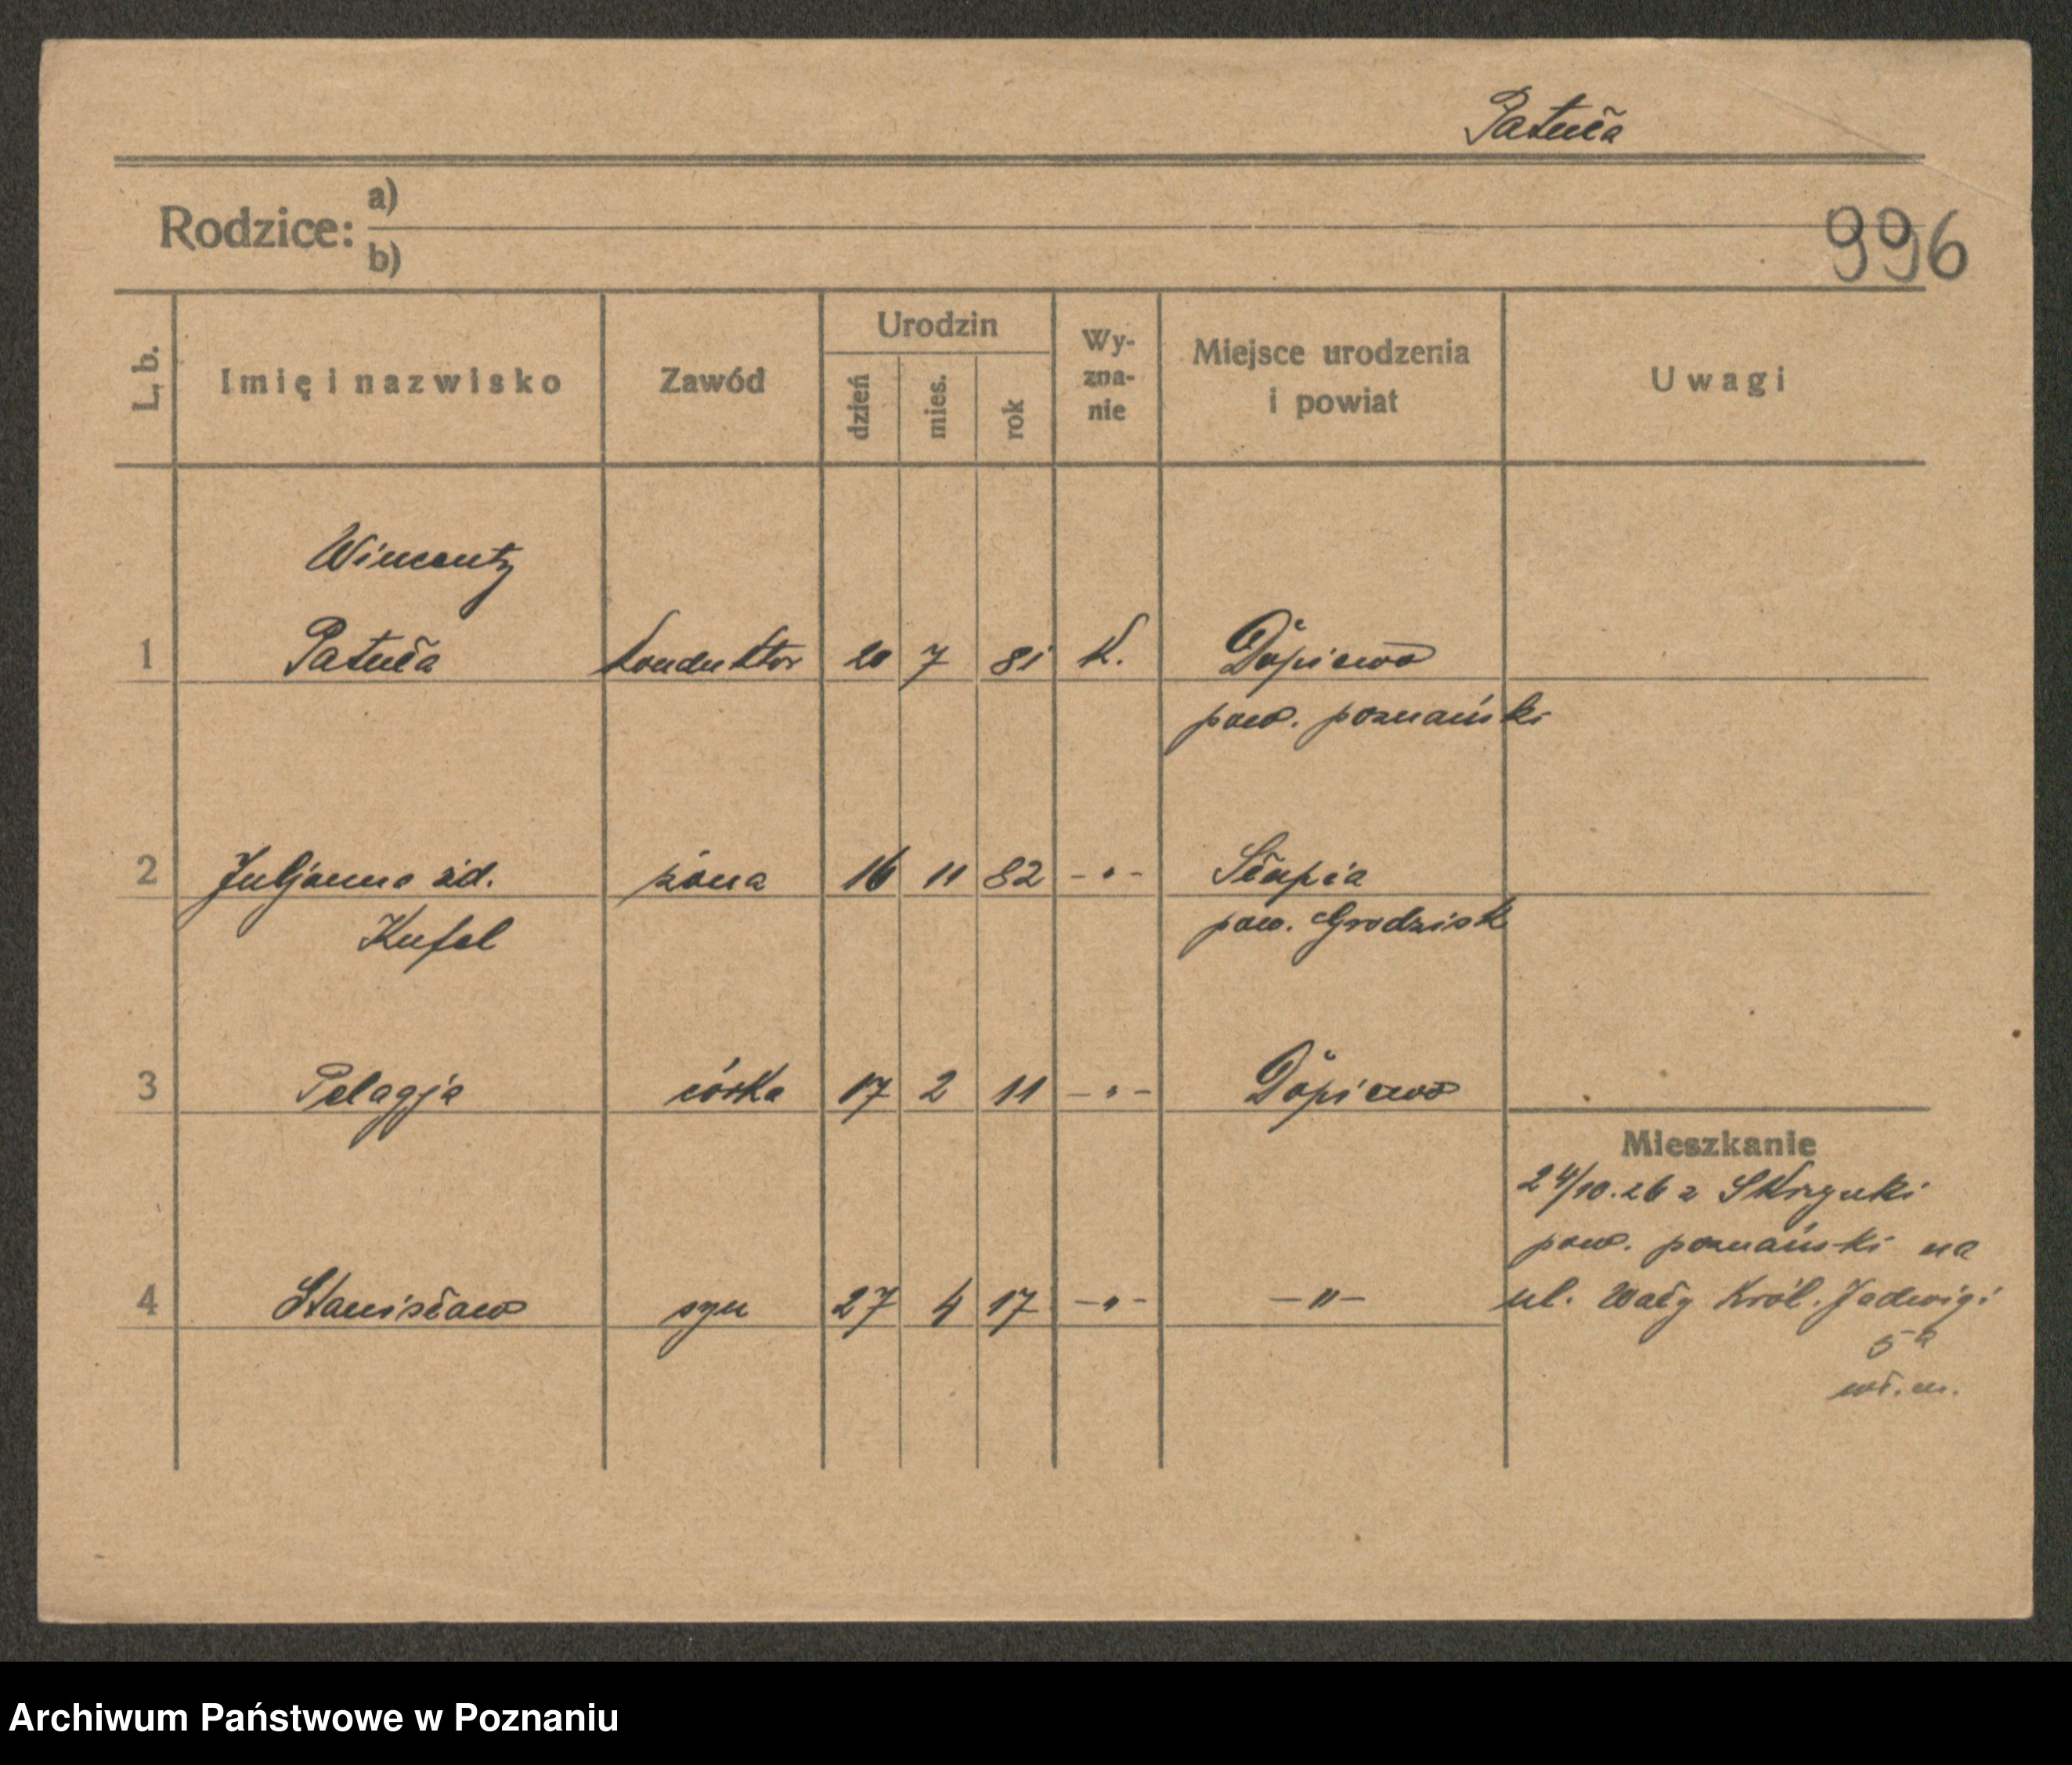 Patuła
Rodzice: a)
b)
996
L. b. Imię i nazwisko Zawód Urodzin dzień mies. rok Wy-zna-nie Miejsce urodzenia i powiat Uwagi
Wincenty
1 Patuła konduktor 20 7 81 K. Dopiewo
pow. poznański
2 Juljanna zd. żona 16 11 82 -"- Słupia
Kufel pow. Grodzisk
3 Pelagja córka 17 2 11 -"- Dopiewo
4 Stanisław syn 27 4 17 -"- -"-
Mieszkanie
24/10.26 z Skrzynki
pow. poznański na
ul. Wały Król. Jadwigi
5a
wł. m.
Archiwum Państwowe w Poznaniu